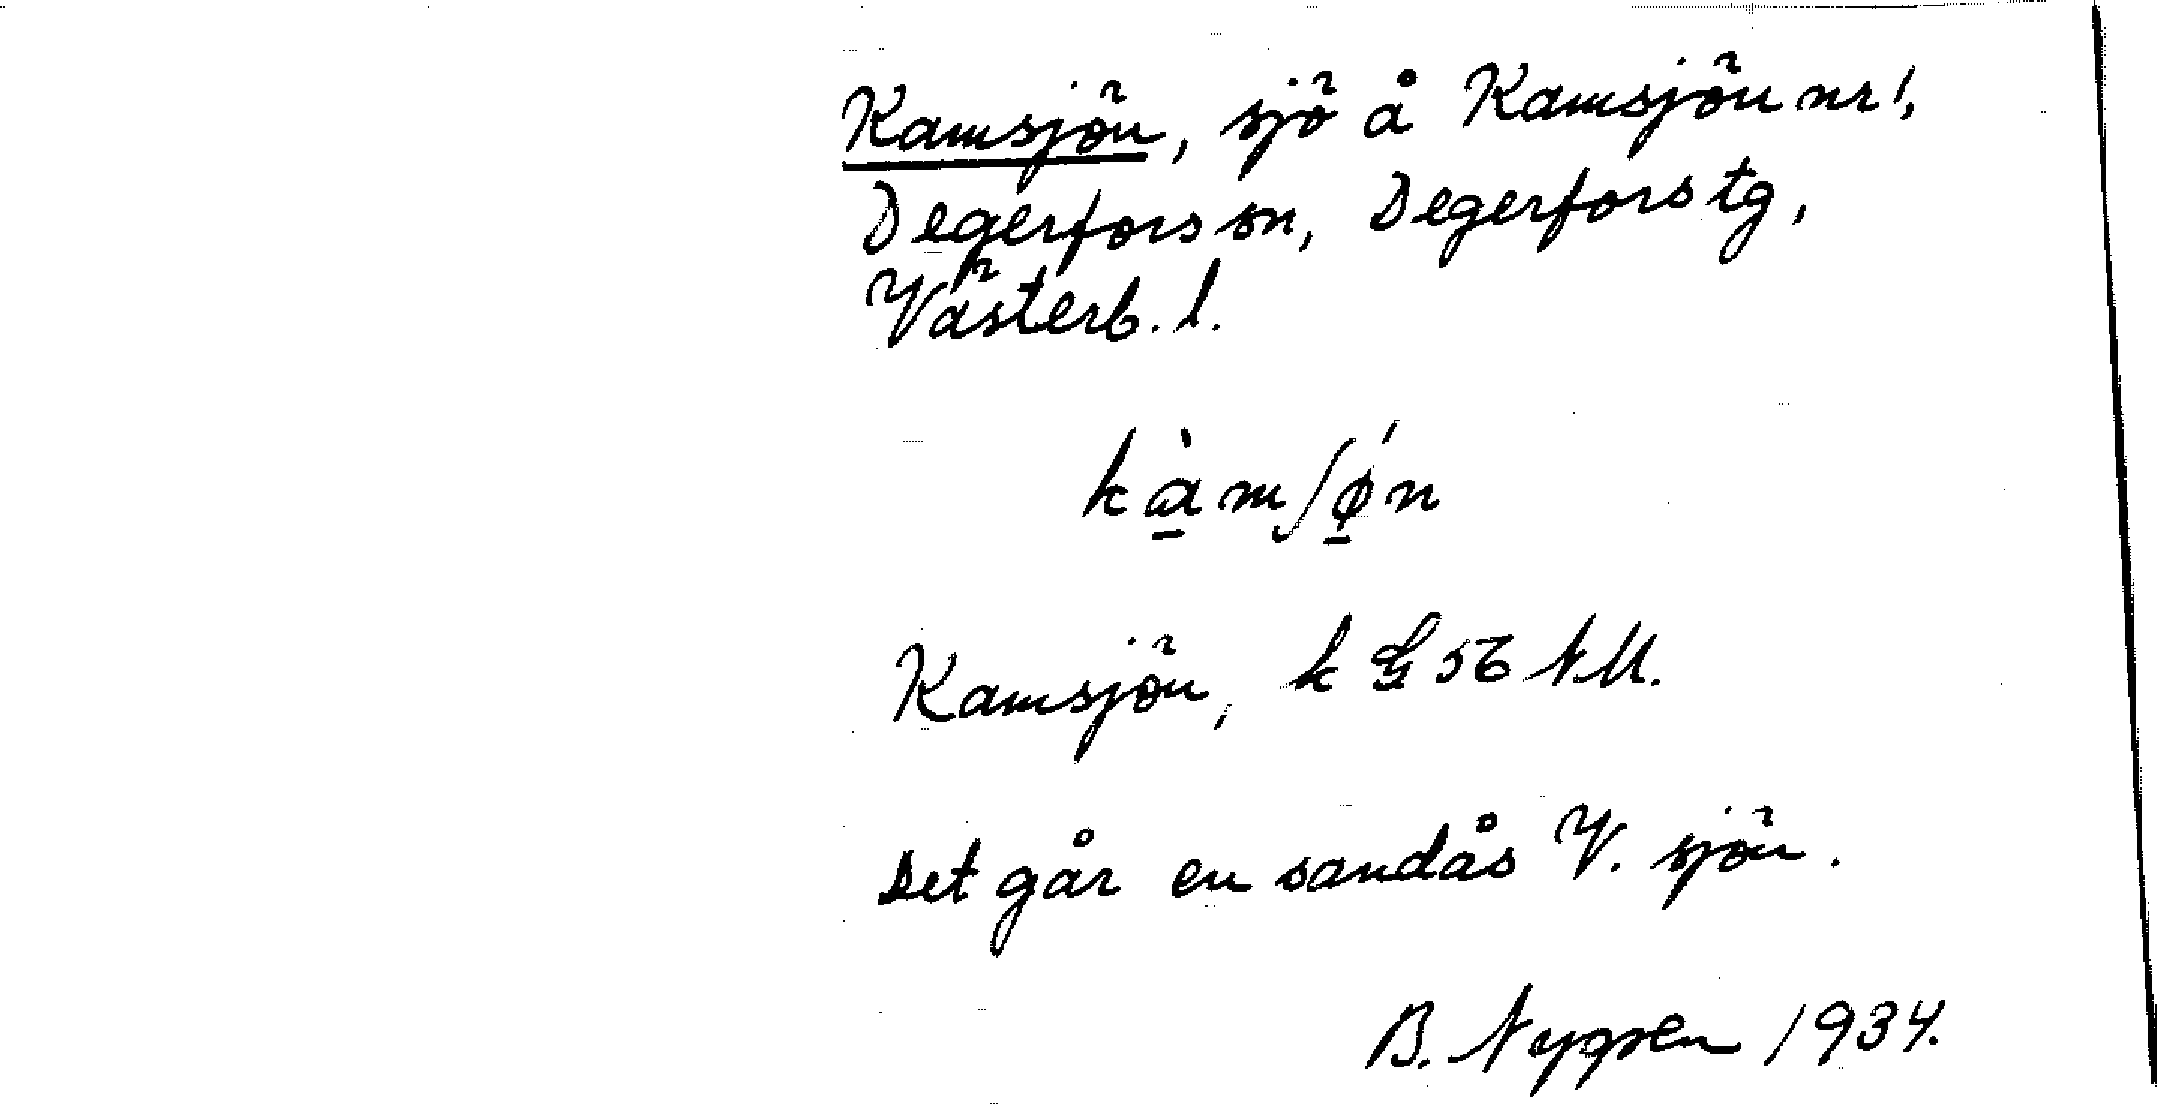 Kamsjön, sjö å Kamsjön nr 1,
Degerfors sn, Degerfors tg,
Västerb. l.
kàmʃǿn
Kamsjön, k GS 56 NM.
Det går en sandås V. sjön.
B. Nygren 1934.